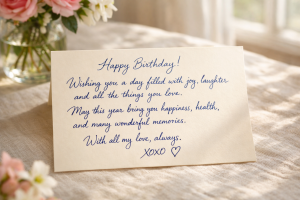 Happy Birthday!
Wishing you a day filled with joy, laughter
and all the things you love.
May this year bring you happiness, health,
and many wonderful memories.
With all my love, always.
XOXO ♡